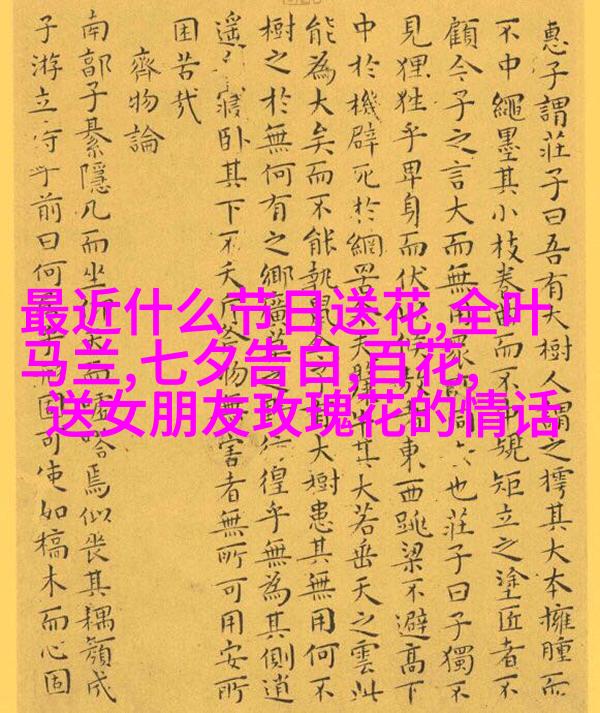 最近什么节日送花,全叶
马兰,七夕告白,百花,
送女朋友玫瑰花的情话
惠子謂莊子曰吾有大樹人謂之樗其大本擁腫而
不中繩墨其小枝卷曲而不中規矩立之塗匠者不
顧今子之言大而無用眾也莊子曰子獨不
見狸狌乎卑身而伏候東西跳梁不避高下
中於機辟死於網罟夫其大若垂天之雲此
能為大矣而不能執鼠今子有大樹患其無用何不
樹之於無何有之鄉廣莫之徨乎無為其側逍
遙寢卧其下不夭斤斧物無害者無所可用安所
困苦哉
齊物論
南郭子綦隱几而坐而噓嗒焉似喪其耦顏成
子游立侍乎前曰何固可使如槁木而心固